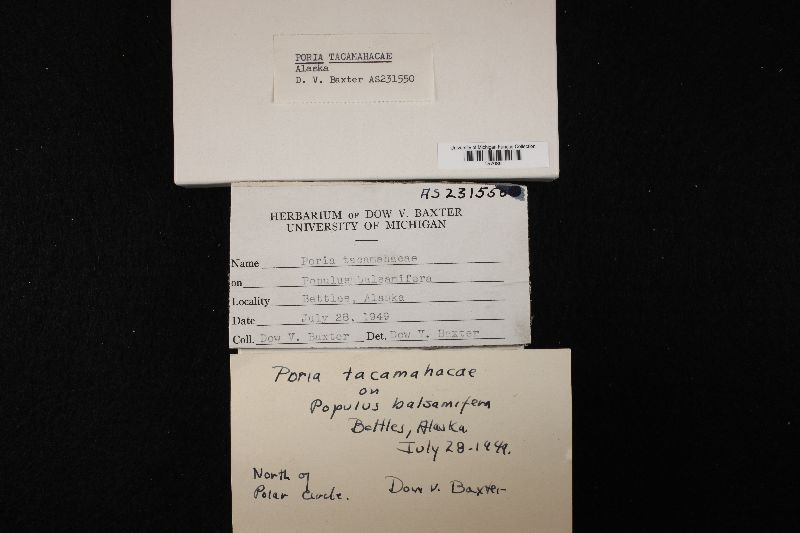 PORIA TACAMAHACAE
Alaska
D. V. Baxter AS231550
University of Michigan Fungus Collection
AS231550
HERBARIUM OF DOW V. BAXTER
UNIVERSITY OF MICHIGAN
Name Poria tacamahacae
on Populus balsamifera
Locality Bettles, Alaska
Date July 28, 1949
Coll. Dow V. Baxter Det. Dow V. Baxter
Poria tacamahacae
on
Populus balsamifera
Bettles, Alaska
July 28-1949.
North of
Polar Circle.
Dow V. Baxter